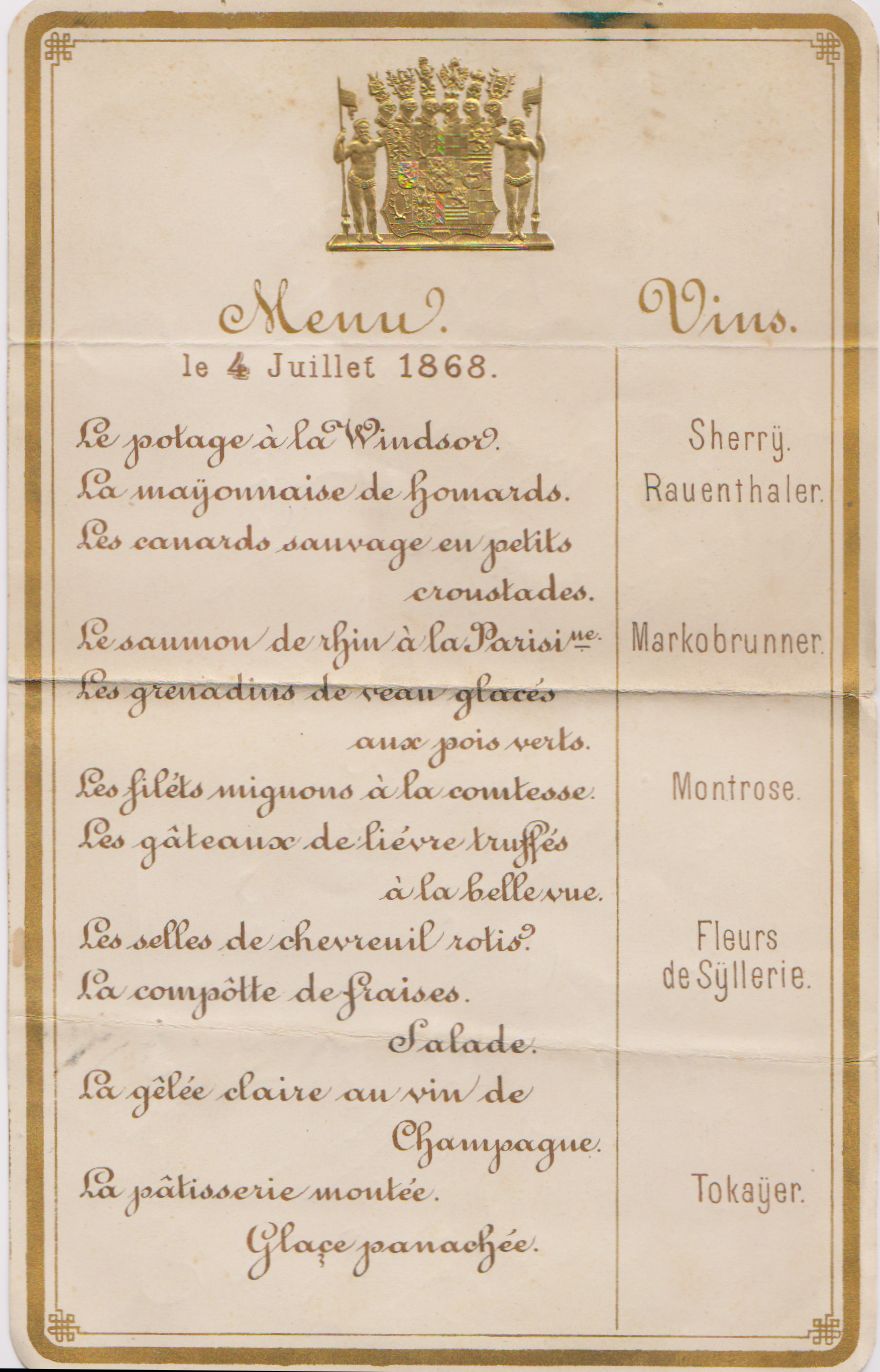 Menu.
le 4 Juillet 1868.
Le potage à la Windsor.
La maÿonnaise de homards.
Les canards sauvage en petits
croustades.
Le saumon de rhin à la Parisine.
Les grenadins de veau glacés
aux pois verts.
Les filéts mignons à la comtesse.
Les gâteaux de liévre truffés
à la belle vue.
Les selles de chevreuil rotis.
La compôtte de fraises.
Salade.
La gêlée claire au vin de
Champagne.
La pâtisserie montée.
Glaçe panachée.
Vins.
Sherrÿ.
Rauenthaler.
Markobrunner.
Montrose.
Fleurs
de Sÿllerie.
Tokaÿer.